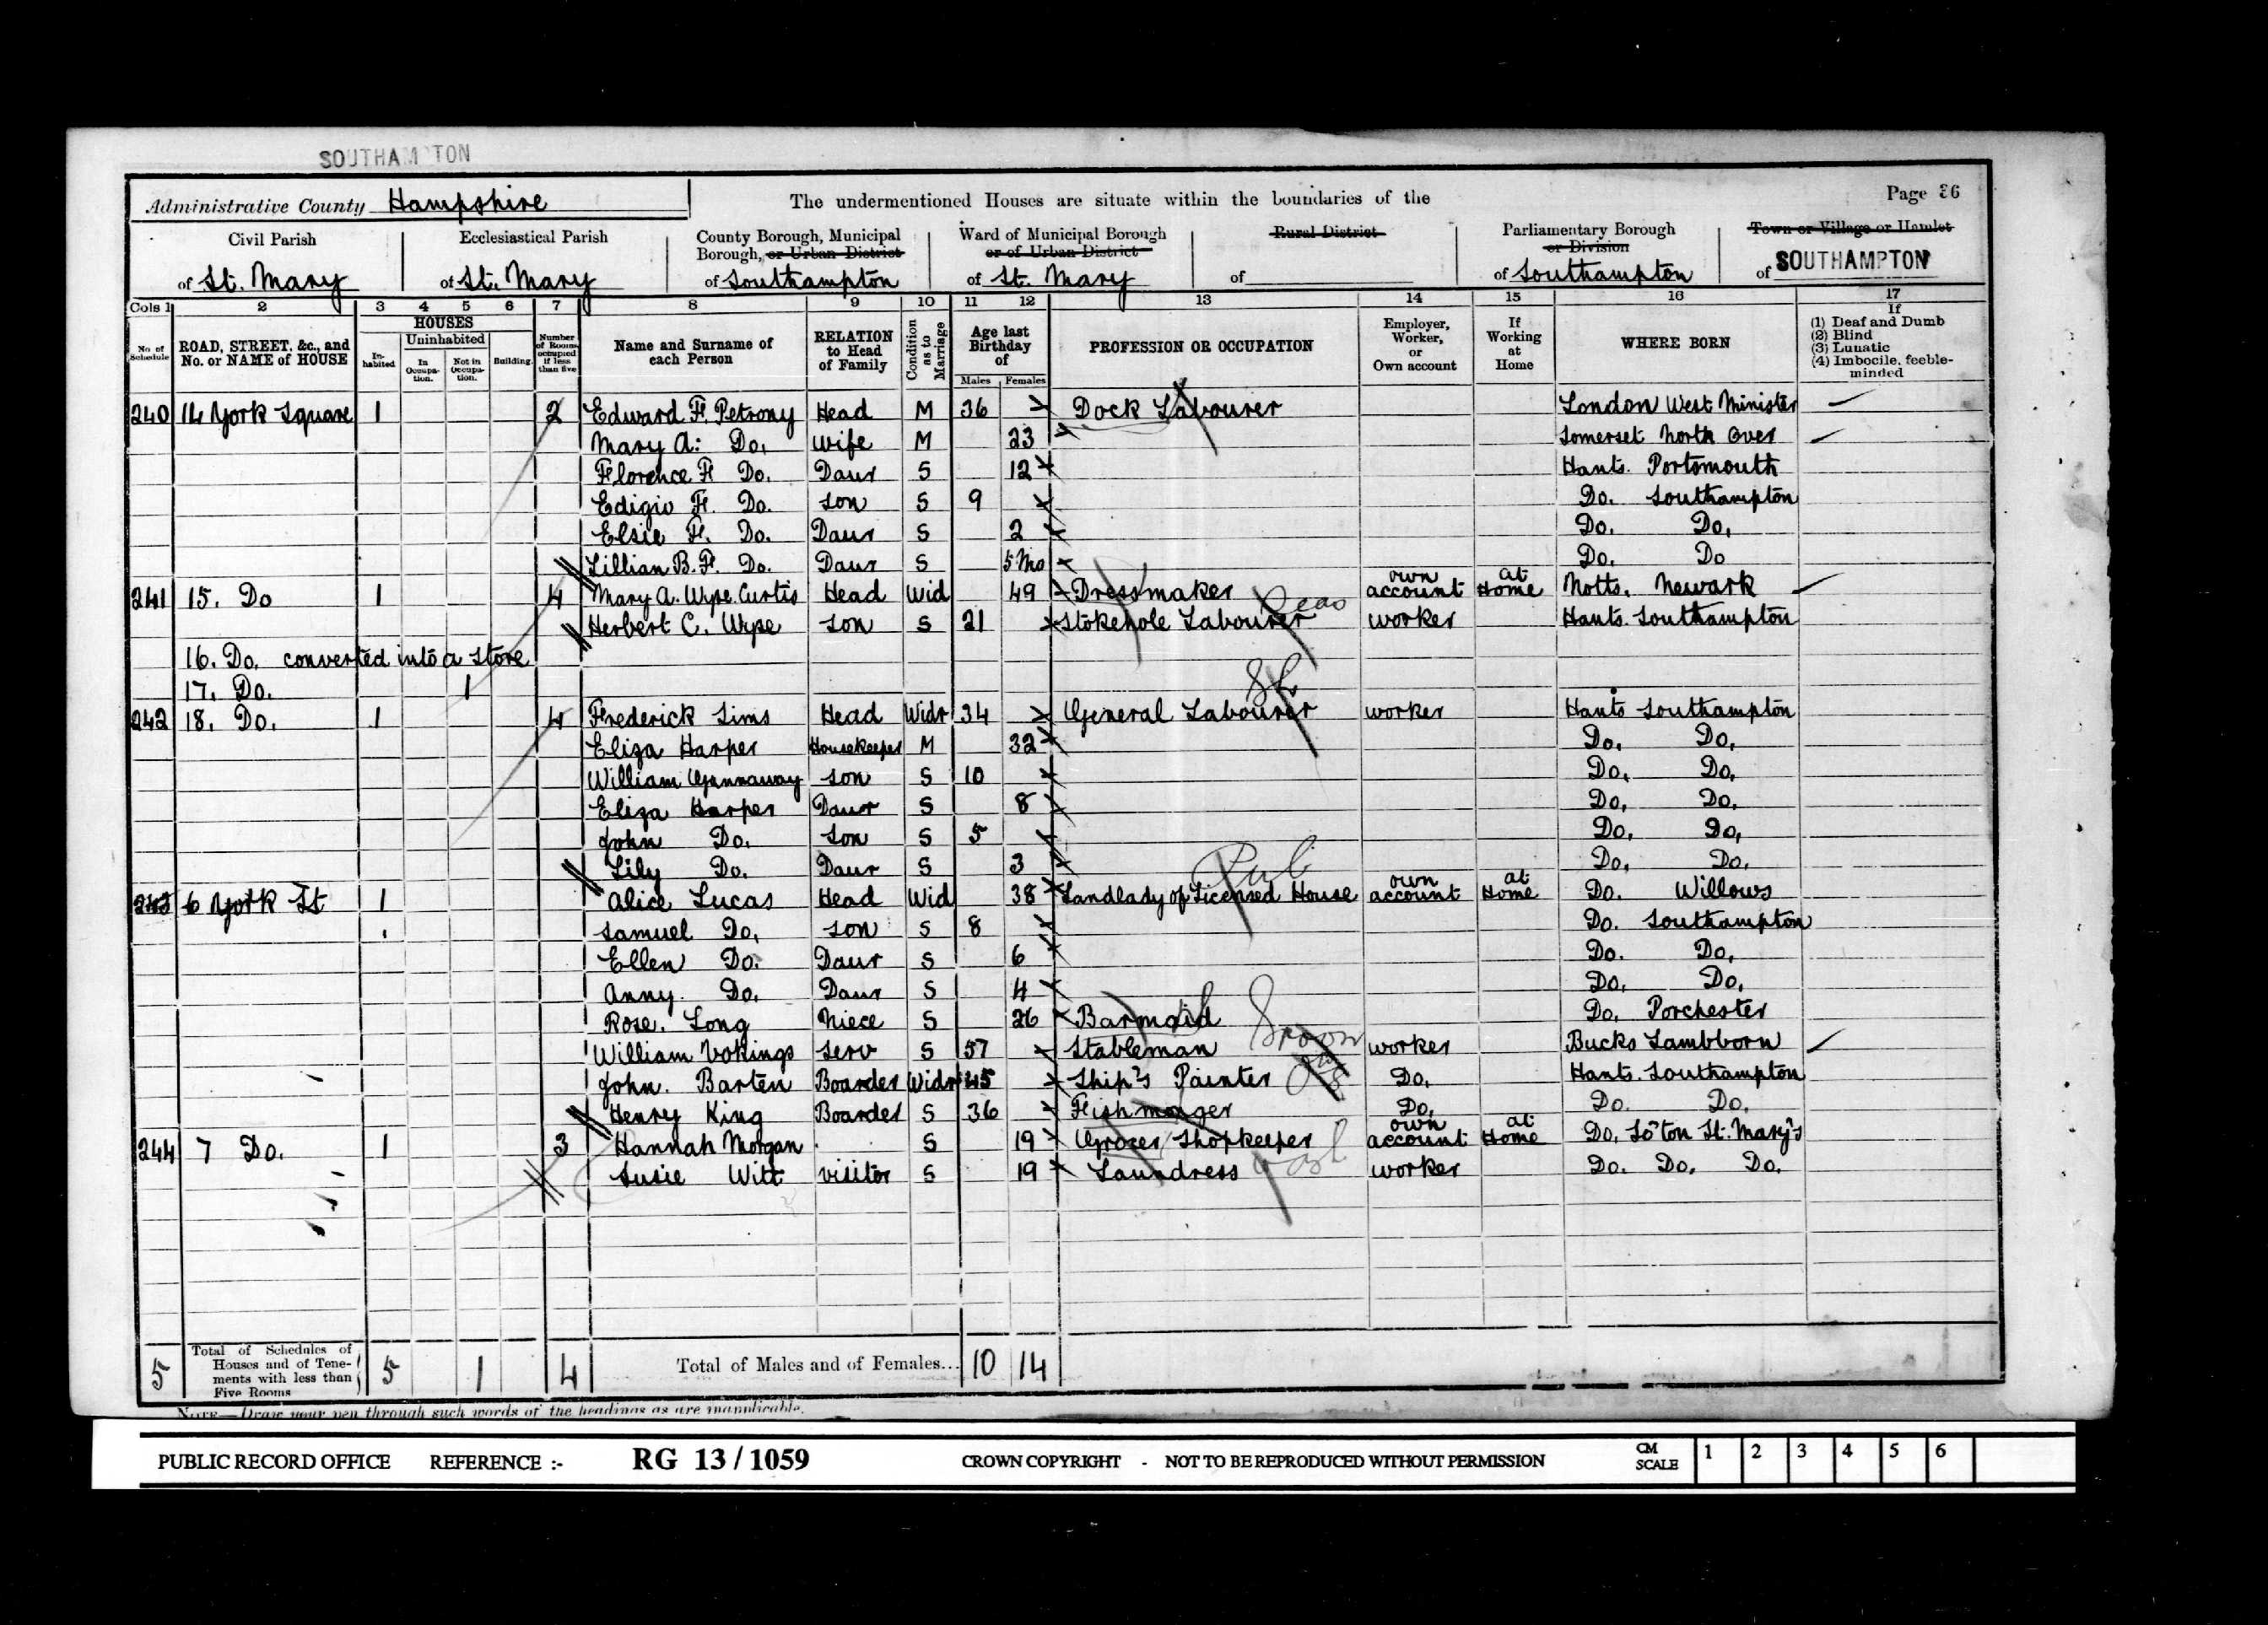 SOUTHAMPTON
Administrative County Hampshire
The undermentioned Houses are situate within the boundaries of the
Page 36
Civil Parish of St. Mary
Ecclesiastical Parish of St. Mary
County Borough, Municipal Borough, or Urban District of Southampton
Ward of Municipal Borough or of Urban District of St. Mary
Rural District of
Parliamentary Borough or Division of Southampton
Town or Village or Hamlet of SOUTHAMPTON
Cols 1 2 3 4 5 6 7 8 9 10 11 12 13 14 15 16 17
No. of Schedule
ROAD, STREET, &c., and No. or NAME of HOUSE
HOUSES
Inhabited
Uninhabited
In Occupation.
Not in Occupation.
Building.
Number of Rooms occupied if less than five
Name and Surname of each Person
RELATION to Head of Family
Condition as to Marriage
Age last Birthday of
Males Females
PROFESSION OR OCCUPATION
Employer, Worker, or Own account
If Working at Home
WHERE BORN
If
(1) Deaf and Dumb
(2) Blind
(3) Lunatic
(4) Imbecile, feeble-minded
240 14 York Square 1 2 Edward F. Petrony Head M 36 Dock Labourer London West Minister
Mary A: Do. wife M 23 Somerset North Over
Florence F Do. Daur S 12 Hants. Portsmouth
Edigio F. Do. Son S 9 Do. Southampton
Elsie F. Do. Daur S 2 Do. Do.
Lillian B. F. Do. Daur S 5 Mo Do. Do
241 15. Do 1 4 Mary A. Wyse Curtis Head Wid 49 Dressmaker own account at Home Notts. Newark
Herbert C. Wyse Son S 21 Stokehole Labourer worker Hants. Southampton
16. Do. converted into a Store
17. Do. 1
242 18. Do. 1 4 Frederick Sims Head Widr 34 General Labourer worker Hants Southampton
Eliza Harper Housekeeper M 32 Do. Do.
William Gannaway Son S 10 Do. Do.
Eliza Harper Daur S 8 Do. Do.
John Do. Son S 5 Do. Do.
Lily Do. Daur S 3 Do. Do.
Pub
243 6 York St 1 Alice Lucas Head Wid 38 Landlady of Licensed House own account at Home Do. Willows
Samuel Do. Son S 8 Do. Southampton
Ellen Do. Daur S 6 Do. Do.
Anny. Do. Daur S 4 Do. Do.
Rose. Long Niece S 26 Barmaid Do. Porchester
William Vokings Serv S 57 Stableman Groom worker Bucks Lambborn
John. Barten Boarder Widr 45 Ship's Painter Do. Hants. Southampton
Henry King Boarder S 36 Fishmonger Do. Do. Do.
244 7 Do. 1 3 Hannah Morgan S 19 Grocer Shopkeeper own account at Home Do. So'ton St. Mary's
Susie Witt visitor S 19 Laundress Wash worker Do. Do. Do.
5 Total of Schedules of Houses and of Tenements with less than Five Rooms 5 1 4 Total of Males and of Females... 10 14
NOTE—Draw your pen through such words of the headings as are inapplicable.
PUBLIC RECORD OFFICE REFERENCE :- RG 13 / 1059 CROWN COPYRIGHT - NOT TO BE REPRODUCED WITHOUT PERMISSION CM SCALE 1 2 3 4 5 6